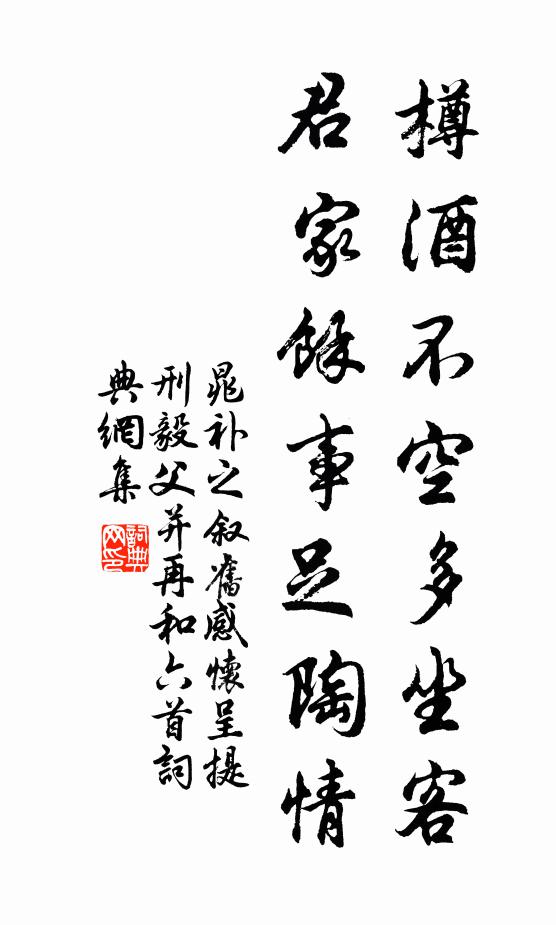 樽酒不空多坐客
君家餘事足陶情
晁补之叙舊感懷呈提
刑毅父并再和六首詞
典網集
詞典
网印